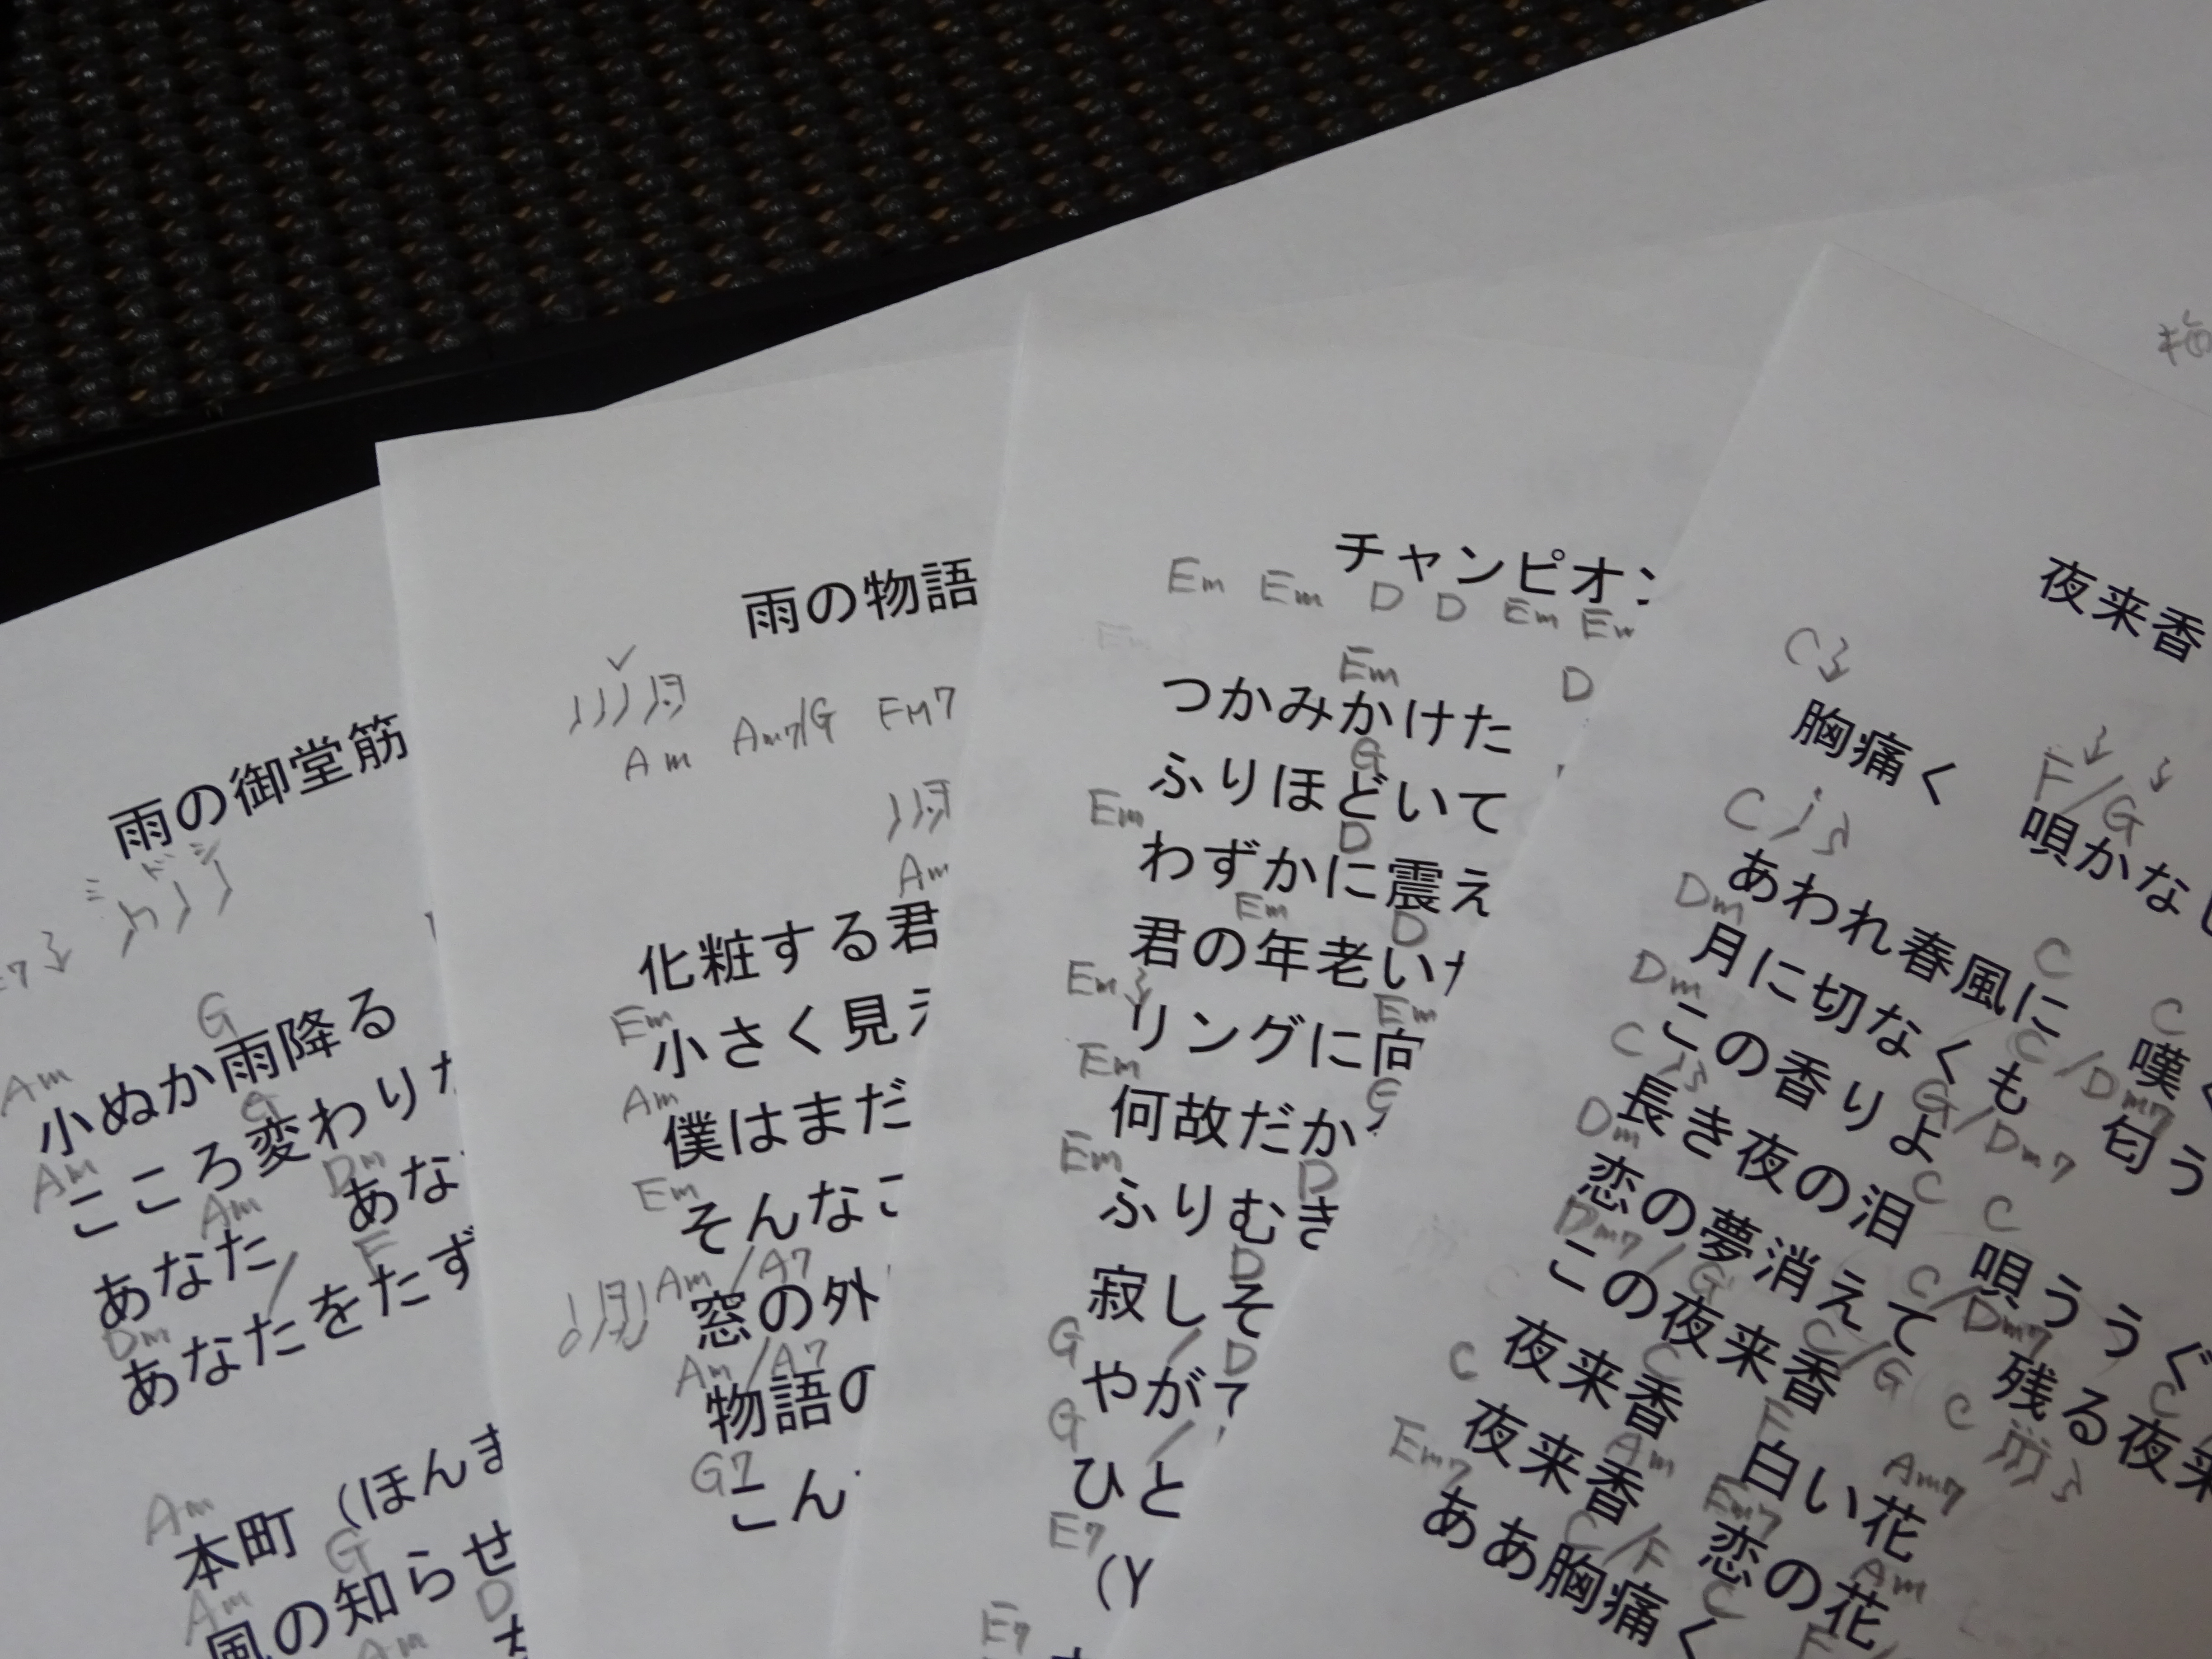 雨の御堂筋
ミ ド シ
G
小ぬか雨降る
Am
G
こころ変わりな
Am
Am Dm
あなた あな
F
あなたをたず
Dm
Am
本町（ほんま
G
風の知らせ
Am
D
Am
雨の物語
Am Am7/G FM7
Am
化粧する君
小さく見え
Em
僕はまだ
Am
そんなこ
Em
Am/A7
窓の外
Am/A7
物語の
G7
こん
チャンピオン
Em Em D D Em Em
Em D
つかみかけた
G
ふりほどいて
Em D
わずかに震え
Em D
君の年老いた
Em Em
リングに向
Em G
何故だか
Em D
ふりむき
D
寂しそ
G / D
やがて
G /
ひと
E7
(Y
E7
夜来香
C
胸痛く 唄かなし
F/G
C
あわれ春風に 嘆く
C C
Dm
月に切なくも 匂う
C/Dm7
Dm
この香りよ
G/Dm7
C
長き夜の泪 唄ううぐ
C C
Dm
恋の夢消えて 残る夜来
C/Dm7 C
Dm7/G
この夜来香
C/G C
C
夜来香 白い花
C F Am7
夜来香 恋の花
Em7 Am Em7 Am
ああ胸痛く
C/F C
F